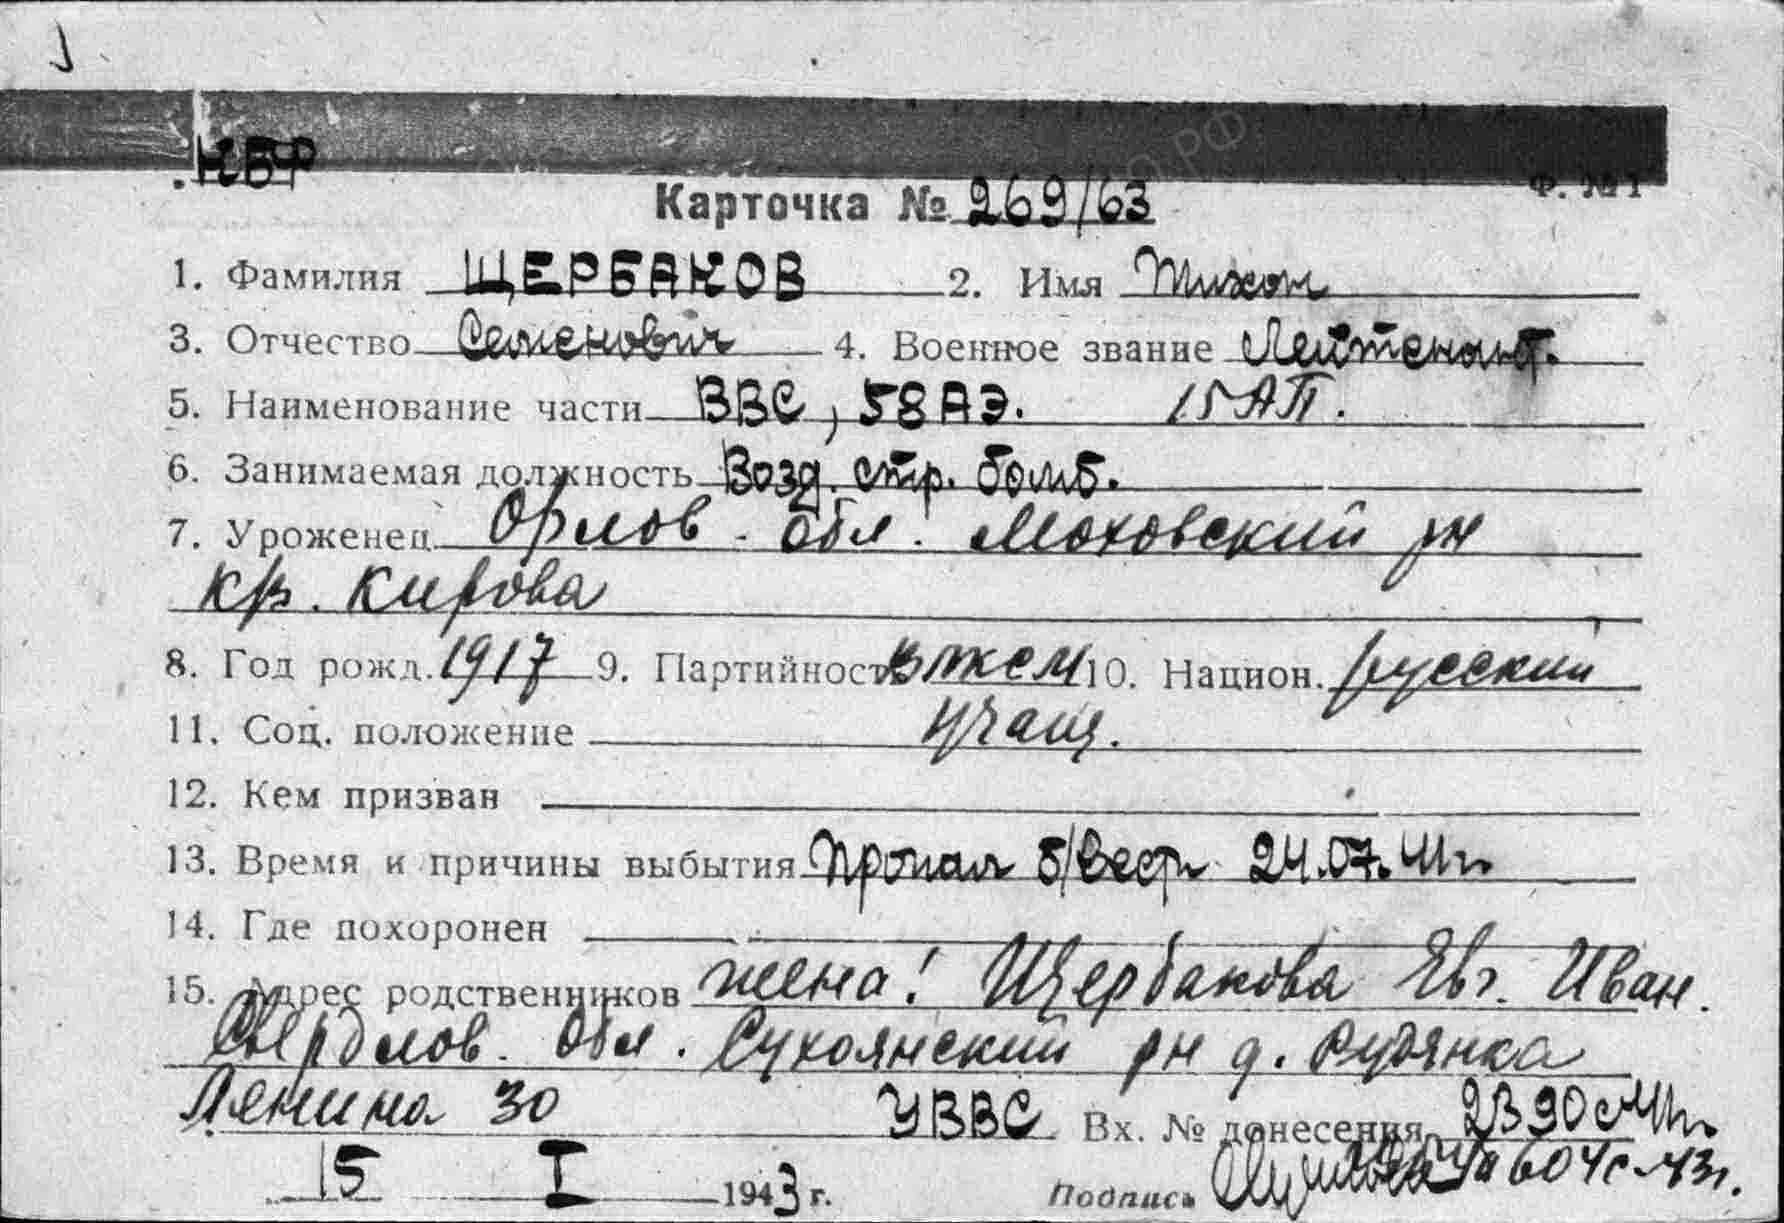 КБФ
Ф. №1
Карточка № 269/63
1. Фамилия ЩЕРБАКОВ 2. Имя Тихон
3. Отчество Семенович 4. Военное звание Лейтенант.
5. Наименование части ВВС, 58 АЭ. 15 АП.
6. Занимаемая должность Возд. стр. бомб.
7. Уроженец Орлов. обл. Моховский рн
Кирова
8. Год рожд. 1917 9. Партийность ВЛКСМ 10. Национ. русский
11. Соц. положение учащ.
12. Кем призван
13. Время и причины выбытия Пропал б/вест 24.07.41г.
14. Где похоронен
15. Адрес родственников жена: Щербакова Евг. Иван.
Свердлов. обл. Сухоянский рн д. Рудянка
Ленина 30 УВВС Вх. № донесения 2390с 41г.
15 I 1943 г. Подпись 604с-43г.